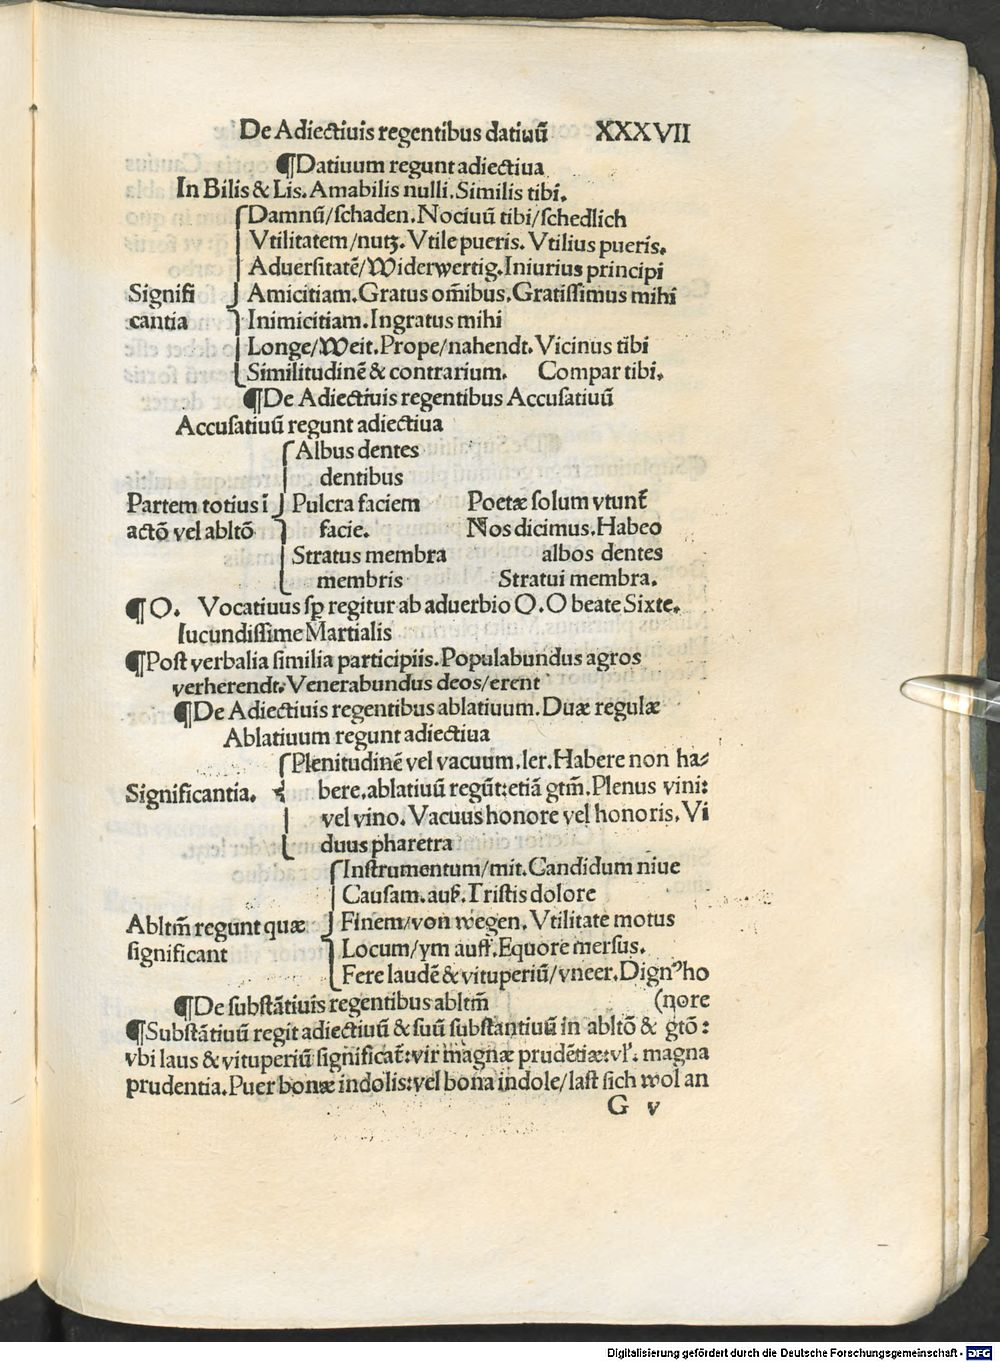 De Adiectiuis regentibus datiuũ XXXVII
¶Datiuum regunt adiectiua
In Bilis & Lis. Amabilis nulli. Similis tibi.
Damnũ/schaden. Nociuũ tibi/schedlich
Vtilitatem/nutz. Vtile pueris. Vtilius pueris.
Aduersitatẽ/Widerwertig. Iniurius principi
Signifi Amicitiam. Gratus om̃ibus. Gratissimus mihi
cantia Inimicitiam. Ingratus mihi
Longe/Weit. Prope/nahendt. Vicinus tibi
Similitudinẽ & contrarium. Compar tibi.
¶De Adiectiuis regentibus Accusatiuũ
Accusatiuũ regunt adiectiua
Albus dentes
dentibus
Partem totius ĩ Pulcra faciem Poetæ solum vtunt̃
actõ vel abltõ facie. Nos dicimus. Habeo
Stratus membra albos dentes
membris Stratui membra.
¶O. Vocatiuus sp̱ regitur ab aduerbio O. O beate Sixte.
Iucundissime Martialis
¶Post verbalia similia participiis. Populabundus agros
verherendt. Venerabundus deos/erent
¶De Adiectiuis regentibus ablatiuum. Duæ regulæ
Ablatiuum regunt adiectiua
Plenitudinẽ vel vacuum. ler. Habere non ha⸗
Significantia. bere. ablatiuũ regũt: etiã gtm̃. Plenus vini:
vel vino. Vacuus honore vel honoris. Vi
duus pharetra
Instrumentum/mit. Candidum niue
Causam. auß. Tristis dolore
Abltm̃ regunt quæ Finem/von wegen. Vtilitate motus
significant Locum/ym auff. Equore mersus.
Fere laudẽ & vituperiũ/vneer. Dignꝰ ho
¶De substãtiuis regentibus abltm̃ (nore
¶Substãtiuũ regit adiectiuũ & suũ substantiuũ in abltõ & gtõ:
vbi laus & vituperiũ significat̃: vir magnæ prudẽtiæ: vl'. magna
prudentia. Puer bonæ indolis: vel bona indole/last sich wol an
G v
Digitalisierung gefördert durch die Deutsche Forschungsgemeinschaft - DFG